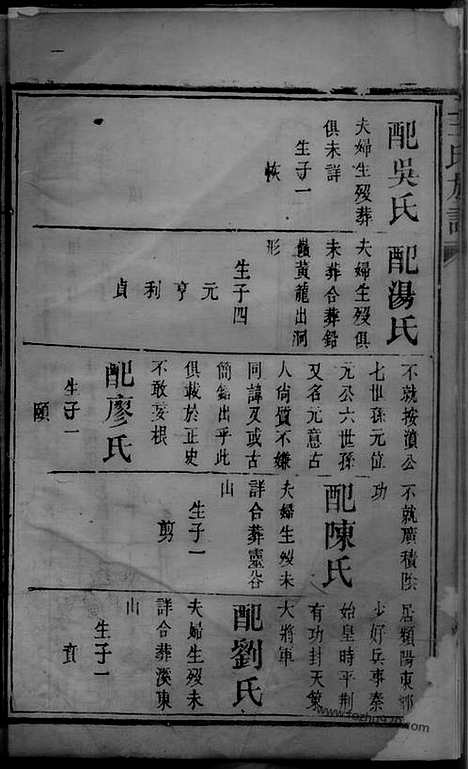 王氏族譜
配吳氏
夫婦生歿葬
俱未詳
生子一
恢
配湯氏
夫婦生歿俱
未葬合葬鉛
黃龍出洞
形
生子四
元
亨
利
貞
不就按濆公
七世孫元位
元公六世孫
又名元意古
人尙質不嫌
同諱及或古
簡錯出乎此
俱載於正史
不敢妄根
配廖氏
生子一
頤
不就廣積陰
功
配陳氏
夫婦生歿未
詳合葬靈谷
山
生子一
剪
居頻陽東鄉
少好兵事秦
始皇時平荆
有功封天策
大將軍
配劉氏
夫婦生歿未
詳合葬溪東
山
生子一
賁